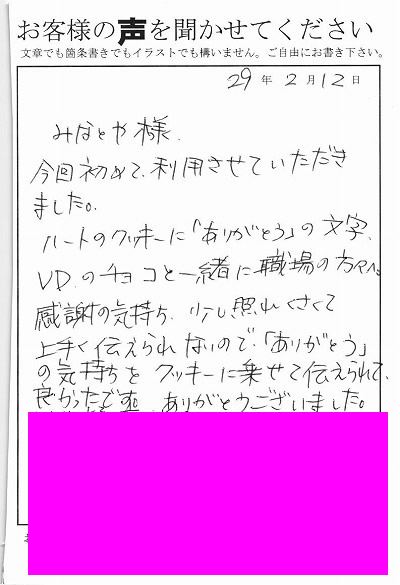 お客様の声を聞かせてください
文章でも箇条書きでもイラストでも構いません。ご自由にお書き下さい。
29年 2月 12日
みなとや様.
今回初めて、利用させていただき
ました。
ハートのクッキーに「ありがとう」の文字、
V.D.のチョコと一緒に職場の方々へ
感謝の気持ち、少し照れくさくて
上手く伝えられないので、「ありがとう」
の気持ちをクッキーに乗せて伝えられて、
良かったです。ありがとうございました。